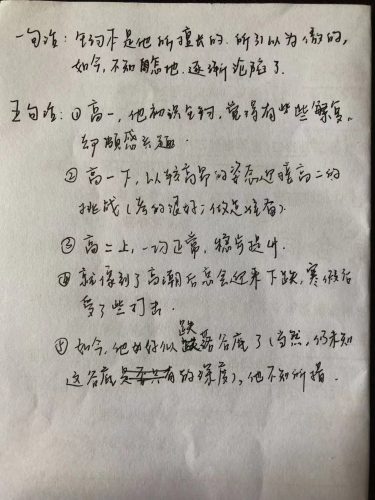 一句话：生物不是他所擅长的.所引以为傲的,
如今,不知怎地.逐渐沦陷了.
五句话：①高一,他初识生物,觉得有些繁复.
却颇感兴趣.
②高一下,以较高昂的姿态迎接高二的
挑战(考的很好;做足准备).
③高二上,一切正常,稳步提升.
④就像到了高潮后总会迎来下跌,寒假后
受了些打击.
⑤如今,他好似跌落谷底了(当然,仍未知
这谷底的深度),他不知所措.